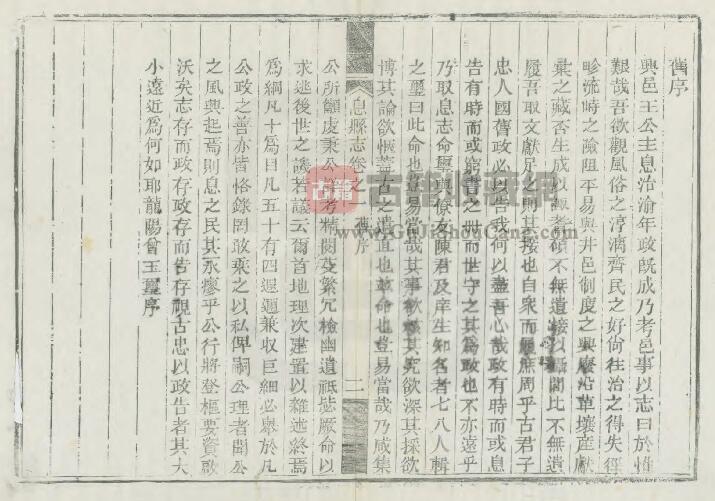 舊序
興邑王公主息治渝年政旣成乃考邑事以志曰於惟
艱哉吾欲觀風俗之淳漓齊民之好尚往治之得失徑
畛流時之險阻平易與井邑制度之興廢沿革壤產獻
彙之藏否生成以諏耆碩不無遺接以聽聞比不無遺
履吾取文獻足之則其接也自衆而履庶周乎古君子
忠人國舊政必以告我何以盡吾心哉政有時而或息
告有時而或窮書之冊而世守之其為政也不亦遠乎
乃取息志命璽與僚友陳君及庠生知名者七八人輯
之璽曰此命也豈易當哉其事欲核其究欲深其採欲
博其論欲愜蓋古之遺直也茲命也豈易當哉乃咸集
息縣志卷之 舊序 二
公所顧處秉公詳考精閱芟繁冗檢幽遺祗毖厥命以
求逃後世之譏若議云爾首地理次建置以雜述終焉
為綱凡十為目凡五十有四遐邇兼収巨細必舉於凡
公政之善亦皆恪錄罔敢棄之以私俾嗣公理者聞公
之風興起焉則息之民其永瘳乎公行將登樞要資啟
沃矣志存而政存政存而告存視古忠以政告者其大
小遠近為何如耶龍陽曾玉璽序
古籍收藏網
www.GuJiShouCang.com